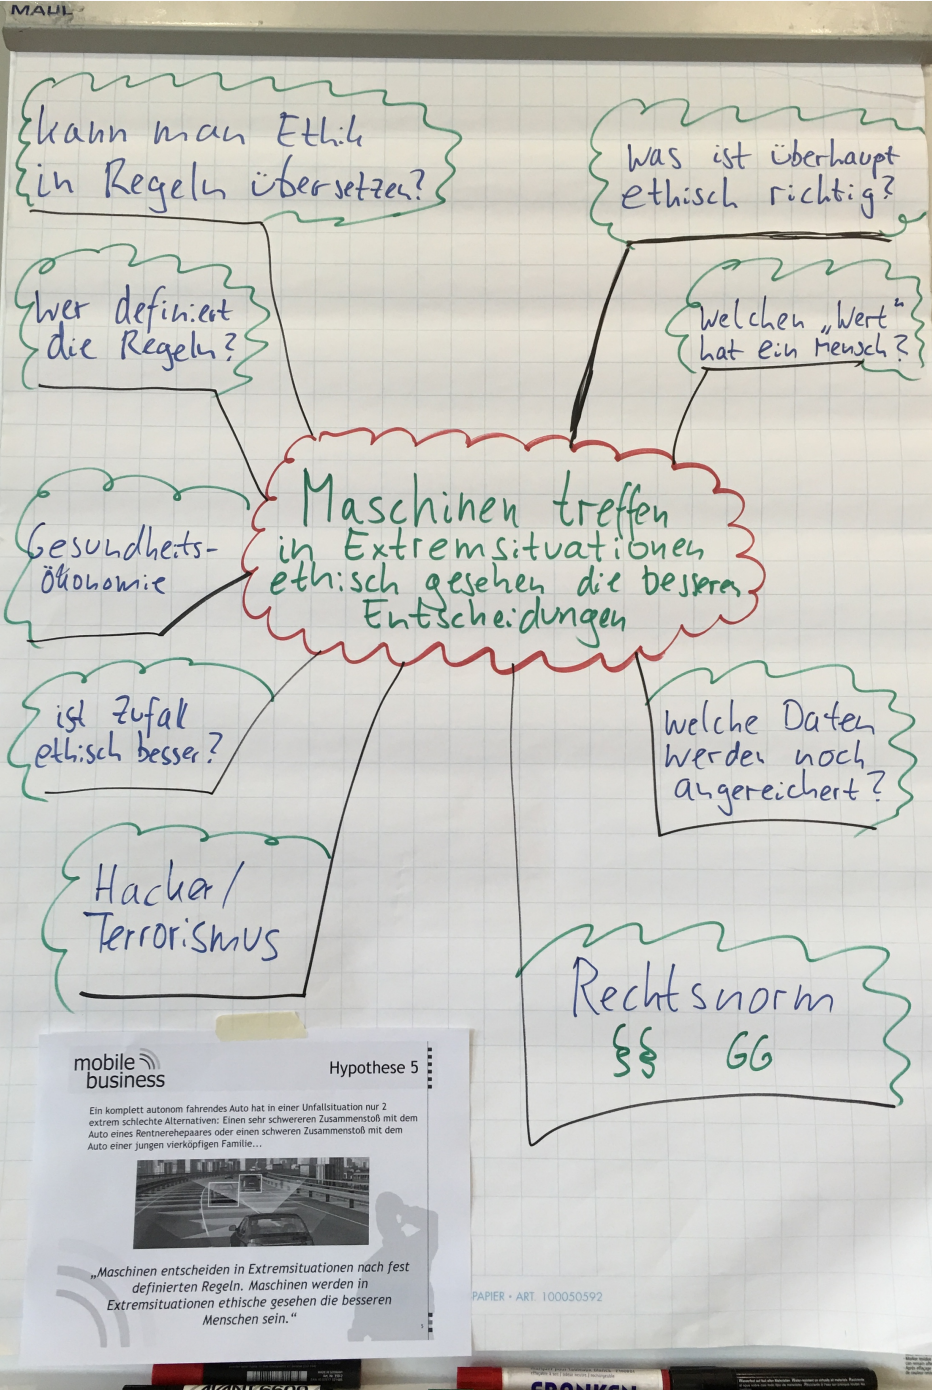 MAUL
kann man Ethik
in Regeln übersetzen?
Was ist überhaupt
ethisch richtig?
Wer definiert
die Regeln?
Welchen „Wert“
hat ein Mensch?
Maschinen treffen
in Extremsituationen
ethisch gesehen die besseren
Entscheidungen
Gesundheits-
ökonomie
ist Zufall
ethisch besser?
welche Daten
werden noch
angereichert?
Hacker/
Terrorismus
Rechtsnorm
§§ GG
mobile
business
Hypothese 5
Ein komplett autonom fahrendes Auto hat in einer Unfallsituation nur 2
extrem schlechte Alternativen: Einen sehr schwereren Zusammenstoß mit dem
Auto eines Rentnerehepaares oder einen schweren Zusammenstoß mit dem
Auto einer jungen vierköpfigen Familie...
„Maschinen entscheiden in Extremsituationen nach fest
definierten Regeln. Maschinen werden in
Extremsituationen ethische gesehen die besseren
Menschen sein.“
PAPIER • ART. 100050592